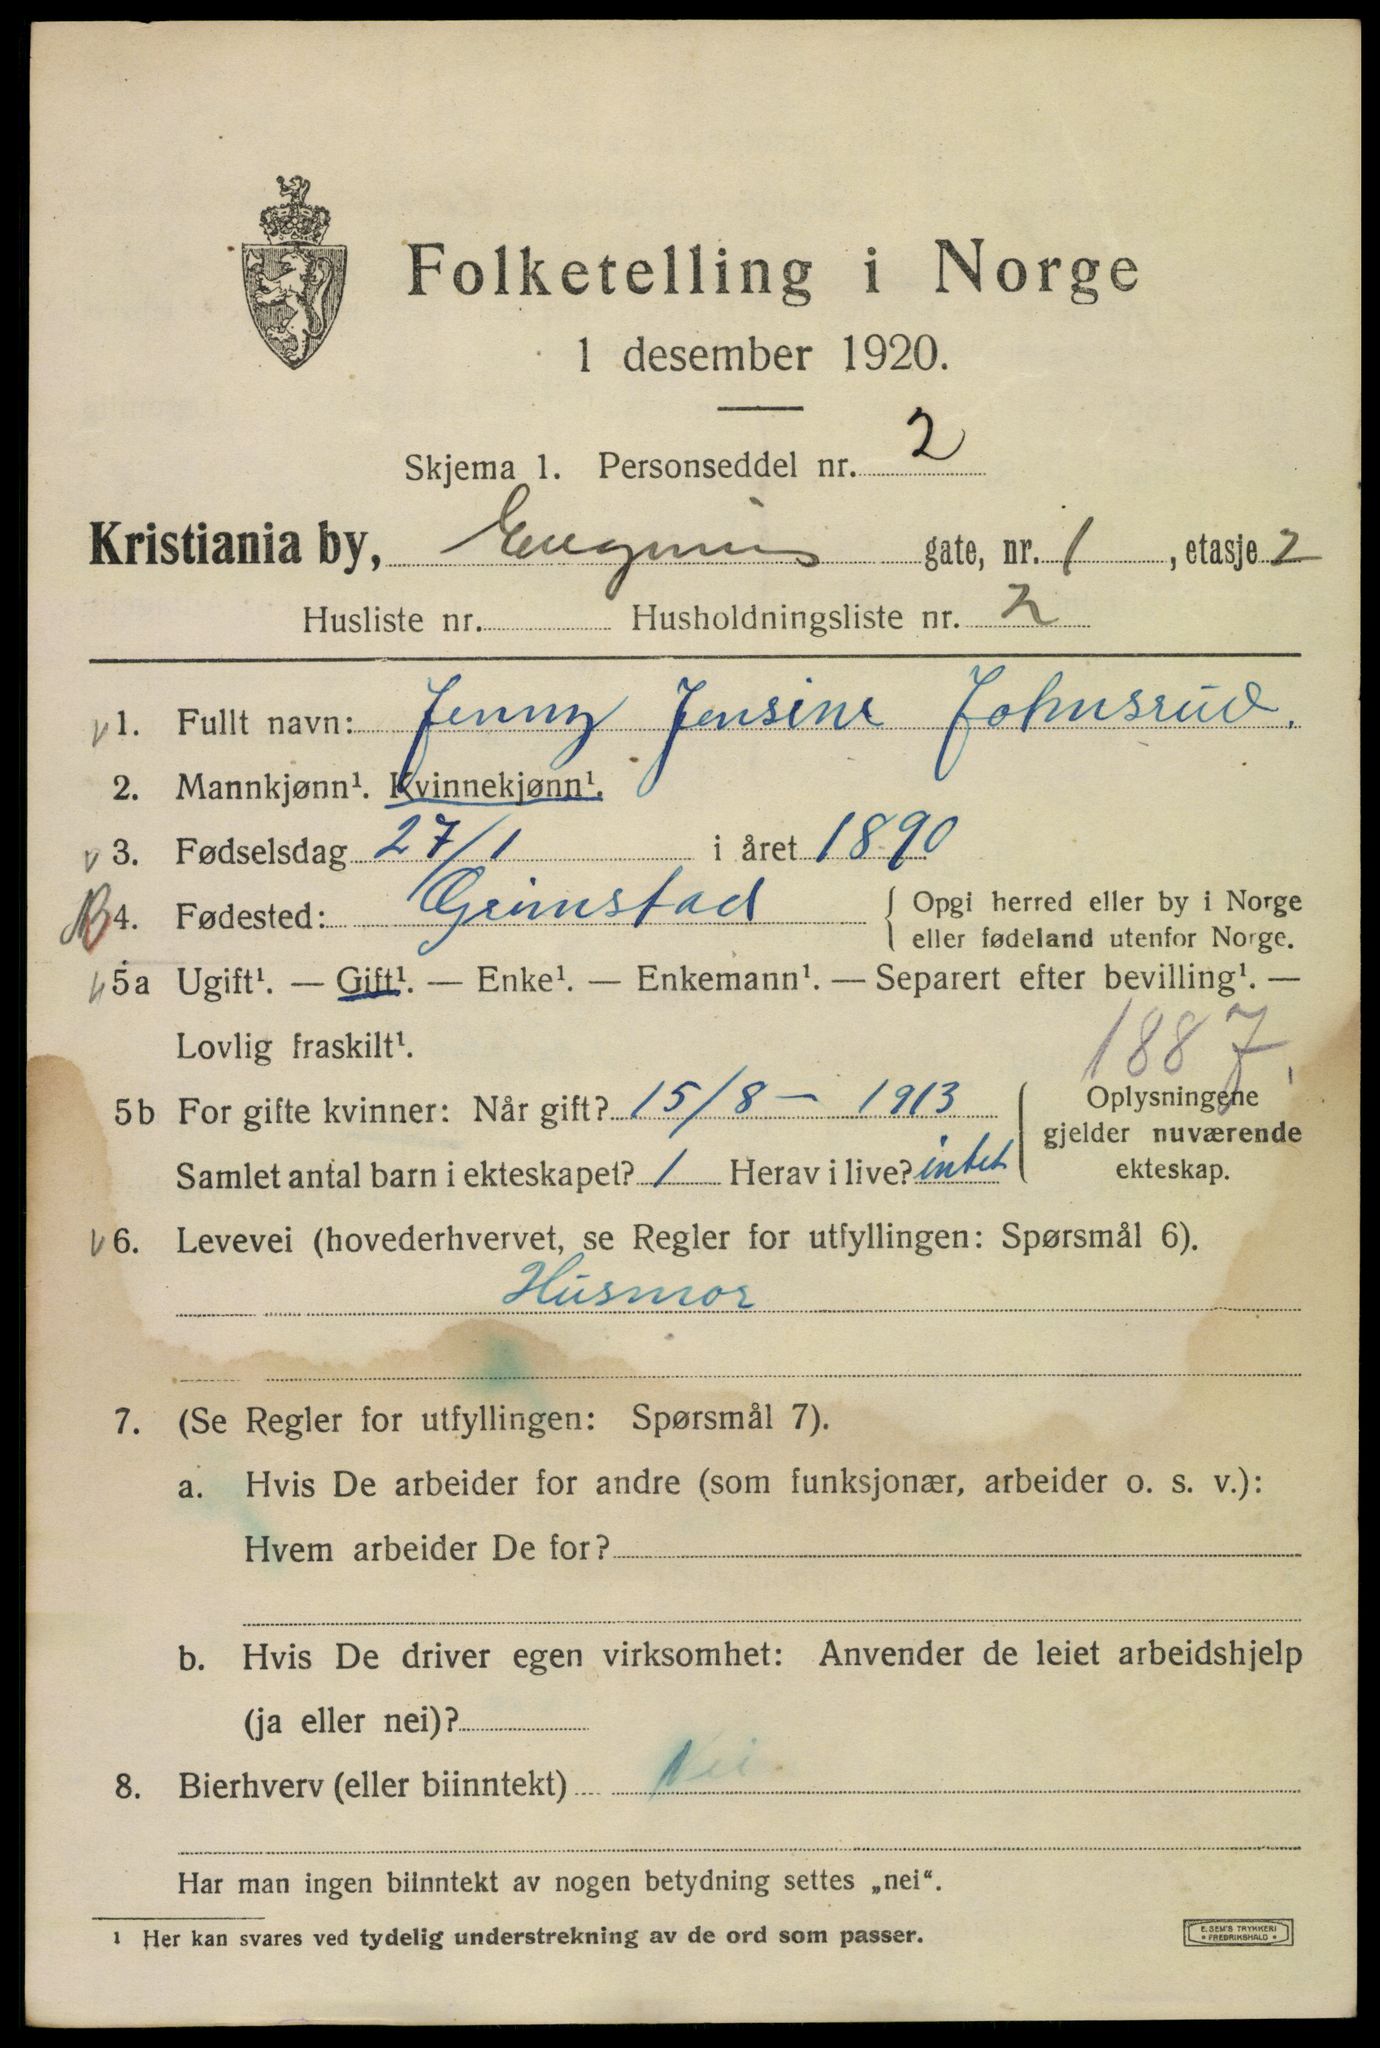 Folketelling i Norge
1 desember 1920.
Skjema 1. Personseddel nr. 2
Kristiania by, Eugenies gate, nr. 1, etasje 2
Husliste nr. Husholdningsliste nr. 2
1. Fullt navn: Jenny Jensine Johnsrud.
2. Mannkjønn¹. Kvinnekjønn¹.
3. Fødselsdag 27/1 i året 1890
4. Fødested: Grimstad { Opgi herred eller by i Norge
eller fødeland utenfor Norge.
5a Ugift¹. — Gift¹. — Enke¹. — Enkemann¹. — Separert efter bevilling¹. —
Lovlig fraskilt¹. 1887
5b For gifte kvinner: Når gift? 15/8 — 1913 { Oplysningene
gjelder nuværende
Samlet antal barn i ekteskapet? 1 Herav i live? intet ekteskap.
6. Levevei (hovederhvervet, se Regler for utfyllingen: Spørsmål 6).
Husmor
7. (Se Regler for utfyllingen: Spørsmål 7).
a. Hvis De arbeider for andre (som funksjonær, arbeider o. s. v.):
Hvem arbeider De for?
b. Hvis De driver egen virksomhet: Anvender de leiet arbeidshjelp
(ja eller nei)?
8. Bierhverv (eller biinntekt) Nei
Har man ingen biinntekt av nogen betydning settes „nei“.
¹ Her kan svares ved tydelig understrekning av de ord som passer.
E. SEM'S TRYKKERI
• FREDRIKSHALD •